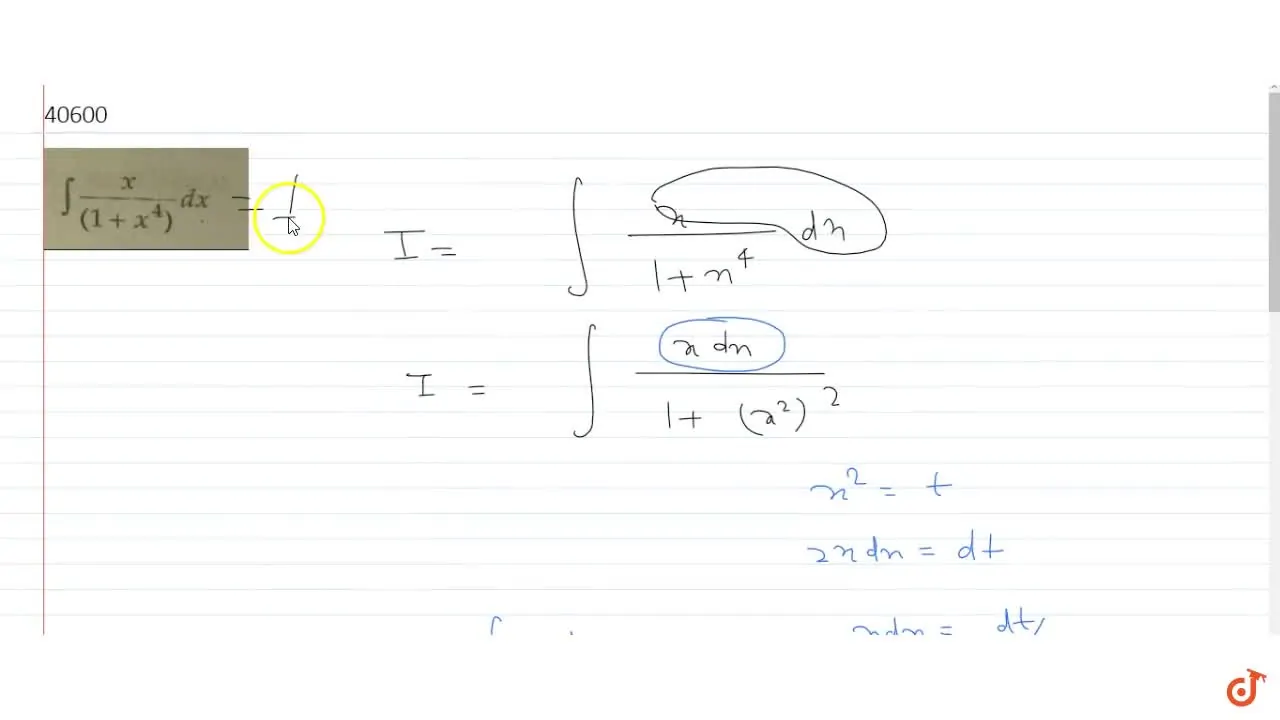 40600
∫ x/(1 + x⁴) dx = 1
I = ∫ x/(1 + x⁴) dx
I = ∫ x dx/(1 + (x²)²)
x² = t
2x dx = dt
x dx = dt/